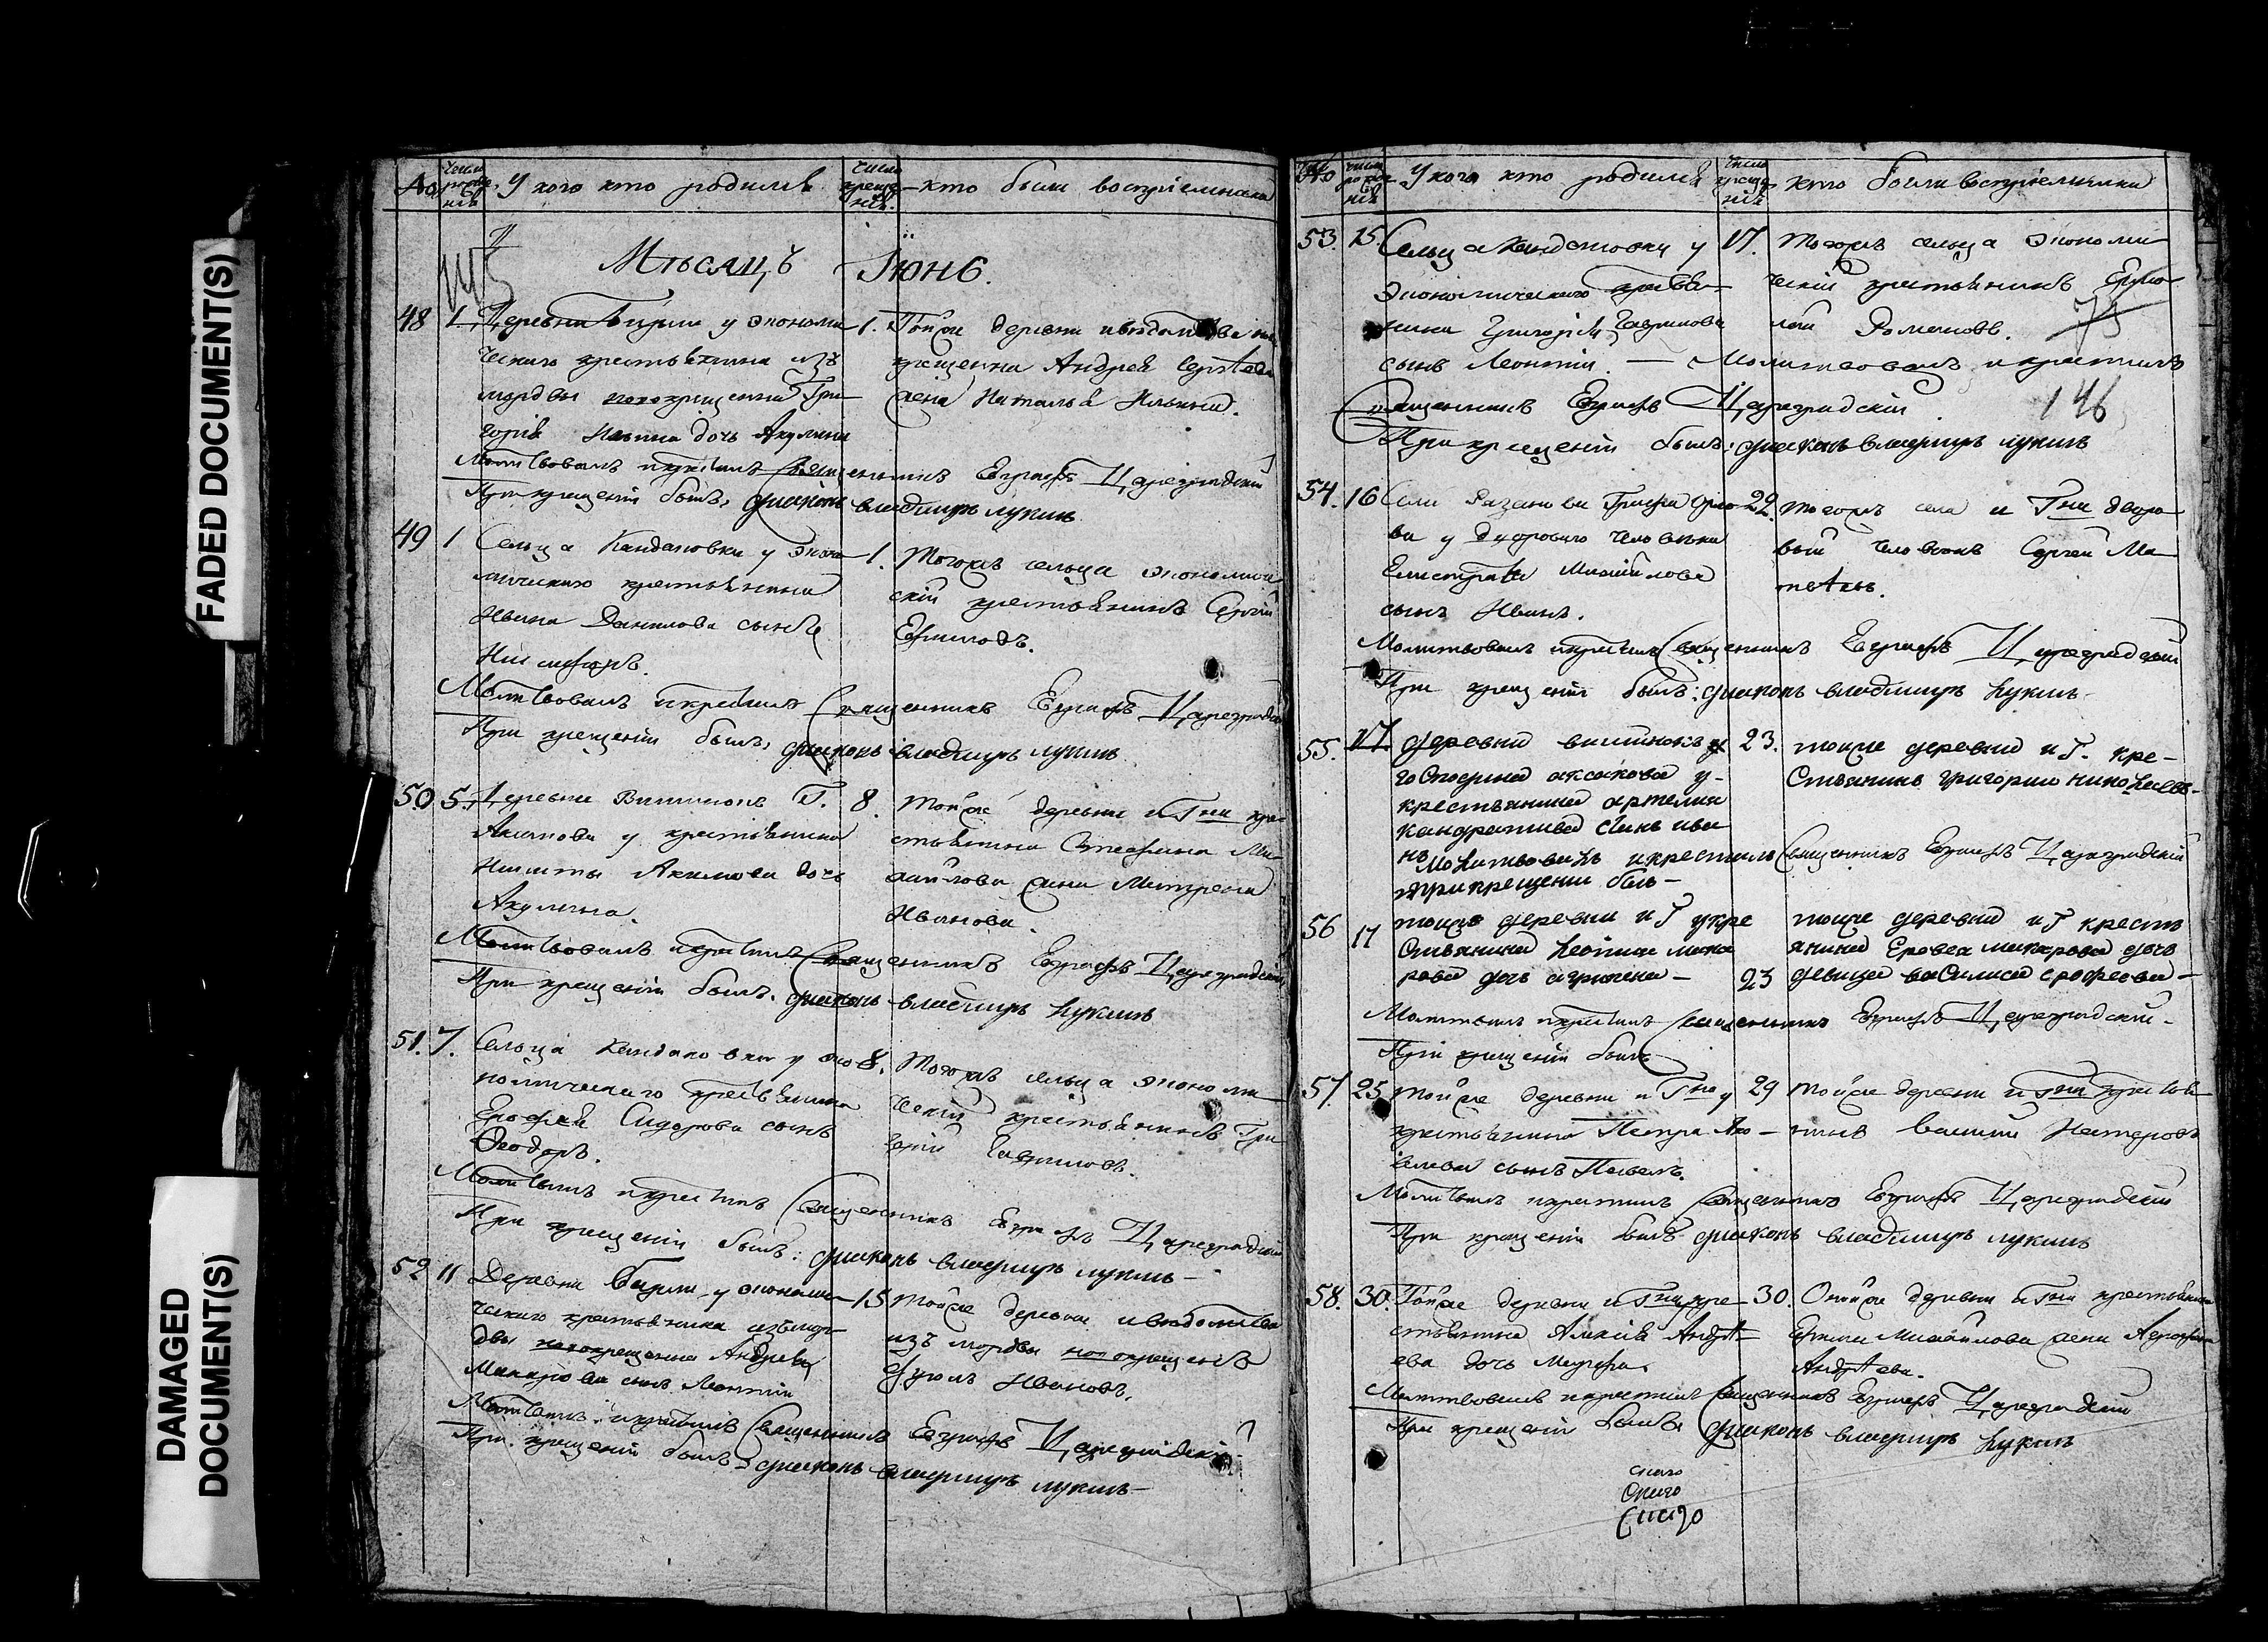 FADED DOCUMENT(S)
DAMAGED DOCUMENT(S)
№
Число рожденія
У кого кто родился
Число крещенія
кто были воспріемники
Мѣсяцъ Іюнь.
48 1. Деревни у экономи
ческаго крестьянина изъ
мордвы новокрещенна Гри
горія Ильина дочь Акулина
1. Тойже деревни и вѣдомства ново
крещенна Андрея Сергѣева
жена Наталья Ильина.
Молитвовалъ и крестилъ Священникъ Евграфъ Цареградскій
При крещеніи былъ: диаконъ владимиръ лукинъ
49 1 Сельца Кандаковки у эконо
мическаго крестьянина
Ивана Данилова сынъ
Никифоръ.
1. Тогожъ сельца экономиче
скій крестьянинъ Сергій
Молитвовалъ и крестилъ Священникъ Евграфъ Цареградскій
При крещеніи былъ: диаконъ владимиръ лукинъ
50 5. Деревни Г.
Аксакова у крестьянина
Никиты Акимова дочь
Акулина.
8. Тойже деревни и Гна кре
стьянина Стефана Ми
хайлова жена Матрена
Иванова.
Молитвовалъ и крестилъ Священникъ Евграфъ Цареградскій
При крещеніи былъ: диаконъ владимиръ лукинъ
51. 7. Сельца Кандаковки у эко
номическаго крестьянина
Ерофея Сидорова сынъ
Ѳеодоръ.
8. Тогожъ сельца экономи
ческій крестьянинъ Гри
горій Гавриловъ.
Молитвовалъ и крестилъ Священникъ Евграфъ Цареградскій
При крещеніи былъ: диаконъ владимиръ лукинъ
52 11 Деревни у экономи
ческаго крестьянина изъ мор
двы новокрещенна Андрея
Макарова сынъ Леонтій
15 Тойже деревни и вѣдомства
изъ мордвы новокрещенъ
Иванъ.
Молитвовалъ и крестилъ Священникъ Евграфъ Цареградскій
При крещеніи былъ: диаконъ владимиръ лукинъ
№
Число рожденія
У кого кто родился
Число крещенія
кто были воспріемники
53. 15 Сельца Кандаковки у
экономическаго крестья
нина Григорія Гаврилова
сынъ Леонтій.
17. Тогожъ сельца экономи
ческій крестьянинъ Ермо
лай Романовъ.
75
Молитвовалъ и крестилъ
Священникъ Евграфъ Цареградскій.
146
При крещеніи былъ: диаконъ владимиръ лукинъ
54. 16 Села Графа Орло
ва у дворового человѣка
Елистрата Михайлова
сынъ Иванъ.
22. Тогожъ села и Гна дворо
вый человѣкъ Сергей Ма
твѣевъ.
Молитвовалъ и крестилъ Священникъ Евграфъ Цареградскій
При крещеніи былъ: диаконъ владимиръ лукинъ
55. 17 деревни
господина аксакова у
крестьянина артемия
кандратиева сынъ ива
нъ
23. тойже деревни и Г. кре-
стьянинъ григорий николаевъ-
Молитвовалъ и крестилъ Священникъ Евграфъ Цареградскій
при крещении былъ-
56 17 тойже деревни и Г у кре
стьянина мака
рова дочь агрипена-
23 тойже деревни и Г кресть
янина Ерофея макарова дочь
девица василиса ерофеева-
Молитвовалъ и крестилъ Священникъ Евграфъ Цареградскій-
При крещеніи былъ
57. 25 Тойже деревни и Гна у
крестьянина Петра Яко-
влева сынъ Павелъ.
29 Тойже деревни и Гна крестья
нинъ Василій Нестеровъ
Молитвовалъ и крестилъ Священникъ Евграфъ Цареградскій
При крещеніи былъ диаконъ владимиръ лукинъ
58. 30. Тойже деревни и Гна кре
стьянина Алексѣя Андрѣ
ева дочь Марфа.
30. Тойже деревни и Гна крестьянина
Михайлова жена
Андрѣева.
Молитвовалъ и крестилъ Священникъ Евграфъ Цареградскій
При крещеніи былъ диаконъ владимиръ лукинъ